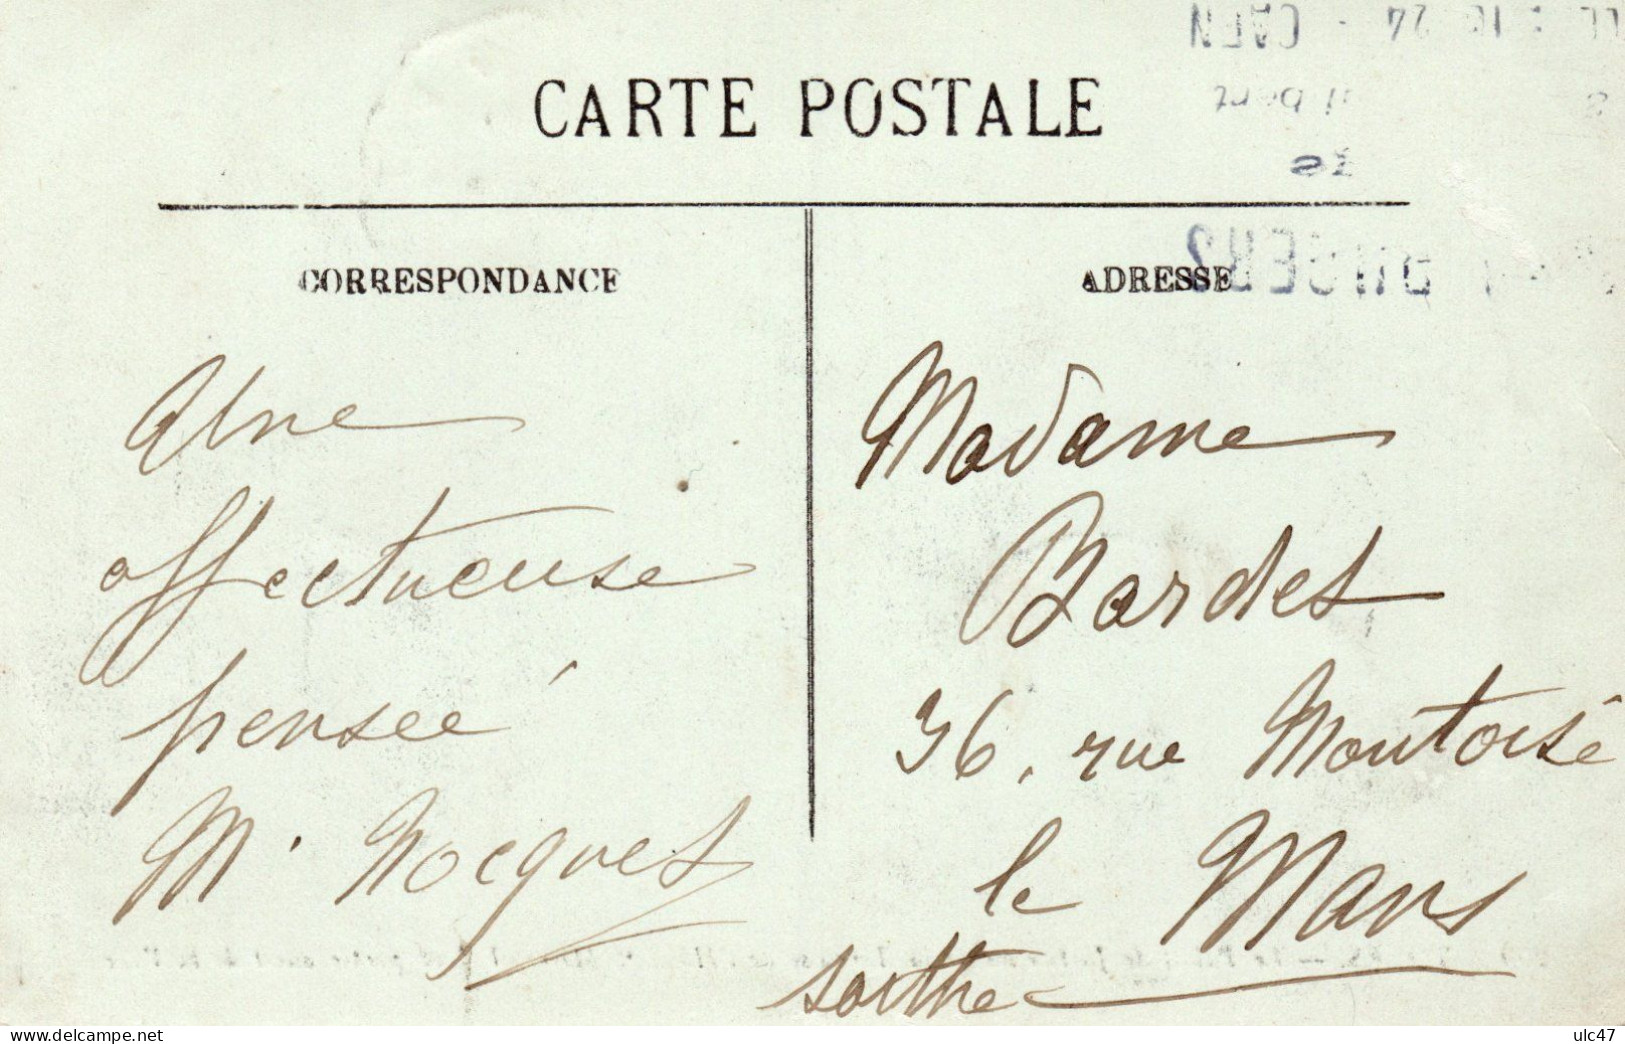 CARTE POSTALE
CORRESPONDANCE
ADRESSE
Une
affectueuse
pensée
M. Nocquet
Madame
Bardet
36, rue Montoise
le Mans
Sarthe
delcampe.net
ulc47